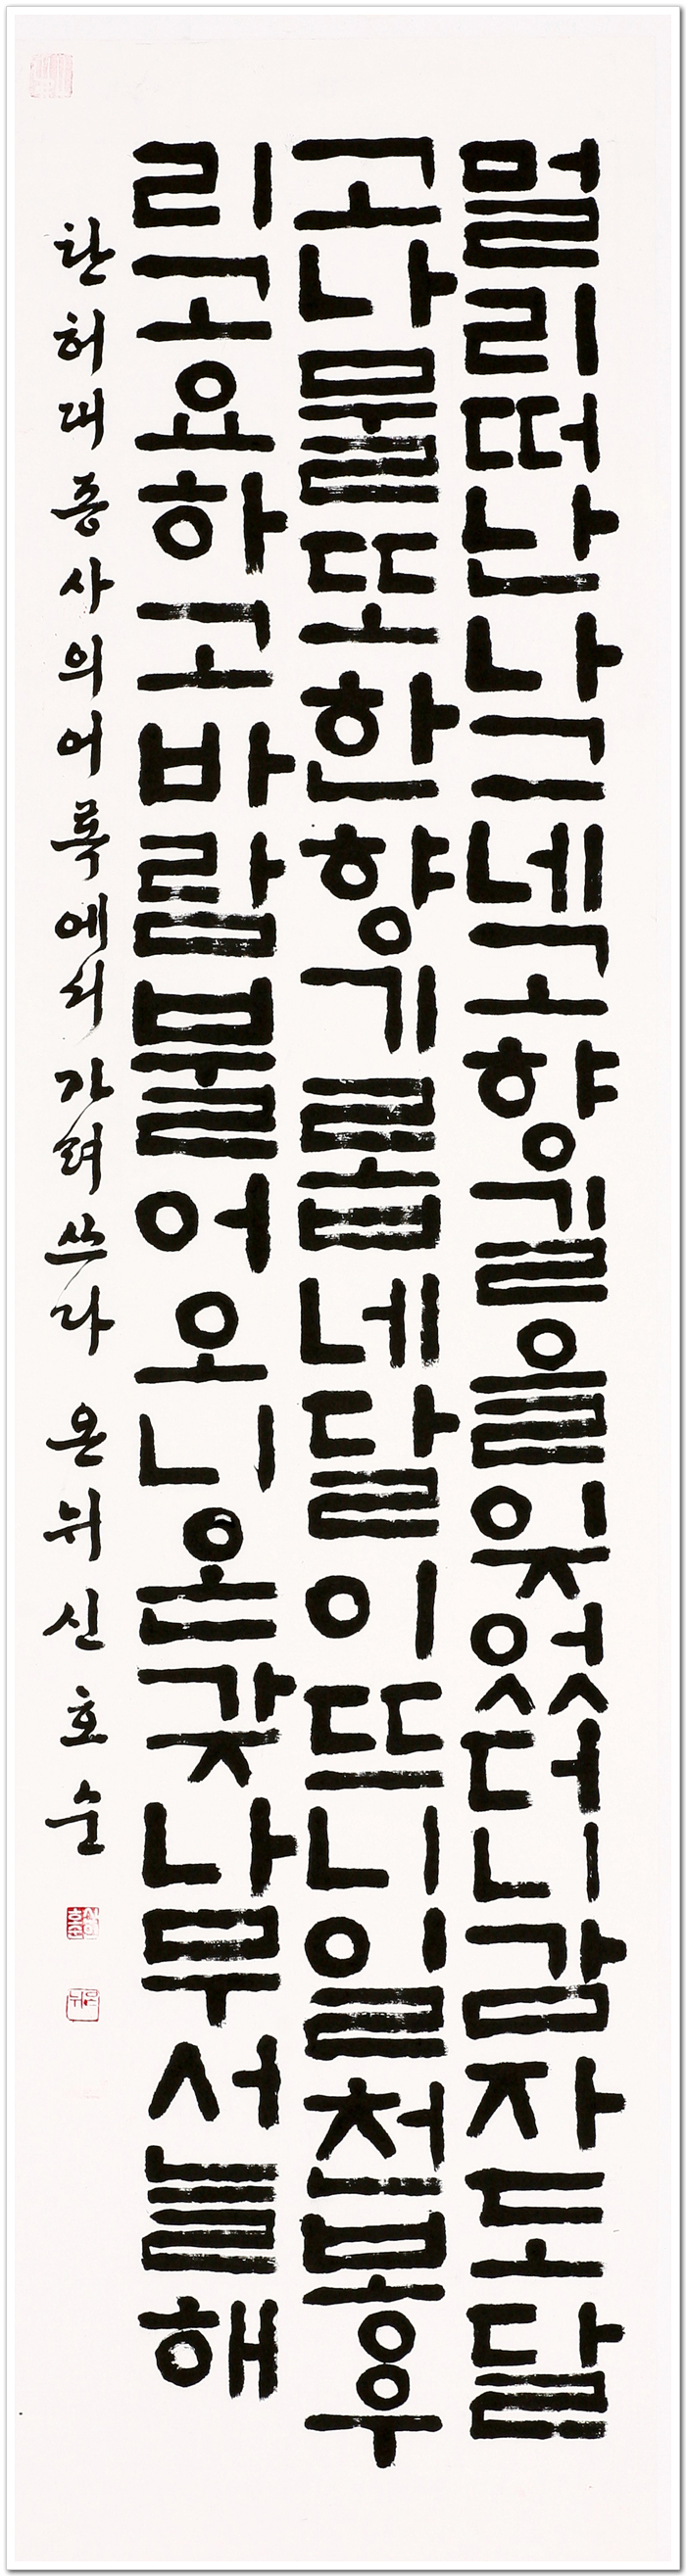 멀리떠난나그네고향길을잊었더니감자도달
고나물또한향기롭네달이뜨니일천봉우
리고요하고바람불어오니온갖나무서늘해
탄허대종사의어록에서가려쓰다 은뉘신호순